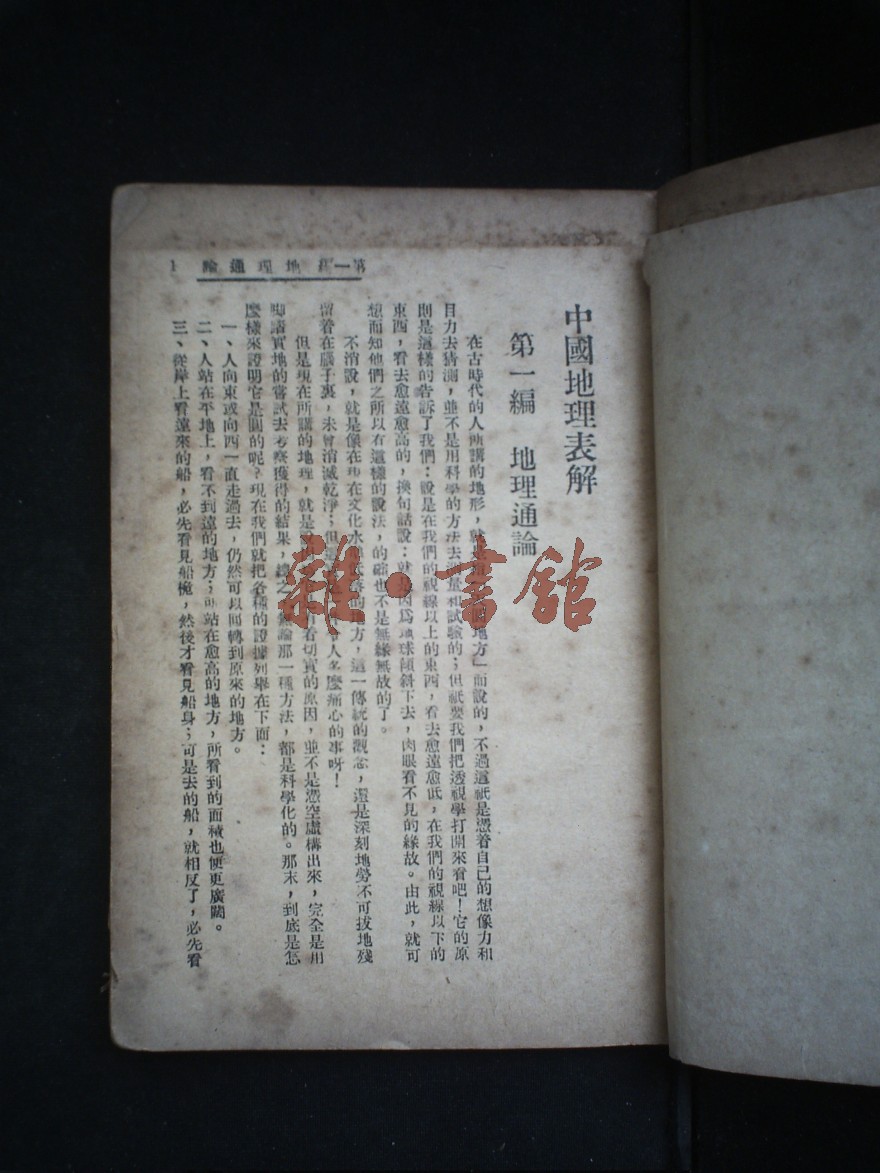 第一編 地理通論 1
中國地理表解
第一編 地理通論
在古時代的人所講的地形,就是 地方」而說的,不過這祇是憑着自己的想像力和
目力去猜測,並不是用科學的方法去測量和試驗的;但祇要我們把透視學打開來看吧!它的原
則是這樣的告訴了我們:說是在我們的視線以上的東西,看去愈遠愈低,在我們的視線以下的
東西,看去愈遠愈高的,換句話說:就是因爲地球傾斜下去,肉眼看不見的緣故。由此,就可
想而知他們之所以有這樣的說法,的確也不是無緣無故的了。
不消說,就是像在現在文化水 的地方,這一傳統的觀念,還是深刻地勞不可拔地殘
留着在腦子裏,未曾消滅乾淨;但這 人多麼痛心的事呀!
但是現在所講的地理,就是說 有着切實的原因,並不是憑空虛構出來,完全是用
脚踏實地的嘗試去考察獲得的結果,總之,無論那一種方法,都是科學化的。那末,到底是怎
麼樣來證明它是圓的呢?現在我們就把各種的證據列舉在下面:
一、人向東或向西一直走過去,仍然可以回轉到原來的地方。
二、人站在平地上,看不到遠的地方;可站在愈高的地方,所看到的面積也便更廣闊。
三、從岸上看遠來的船,必先看見船桅,然後才看見船身;可是去的船,就相反了,必先看
雜·書館